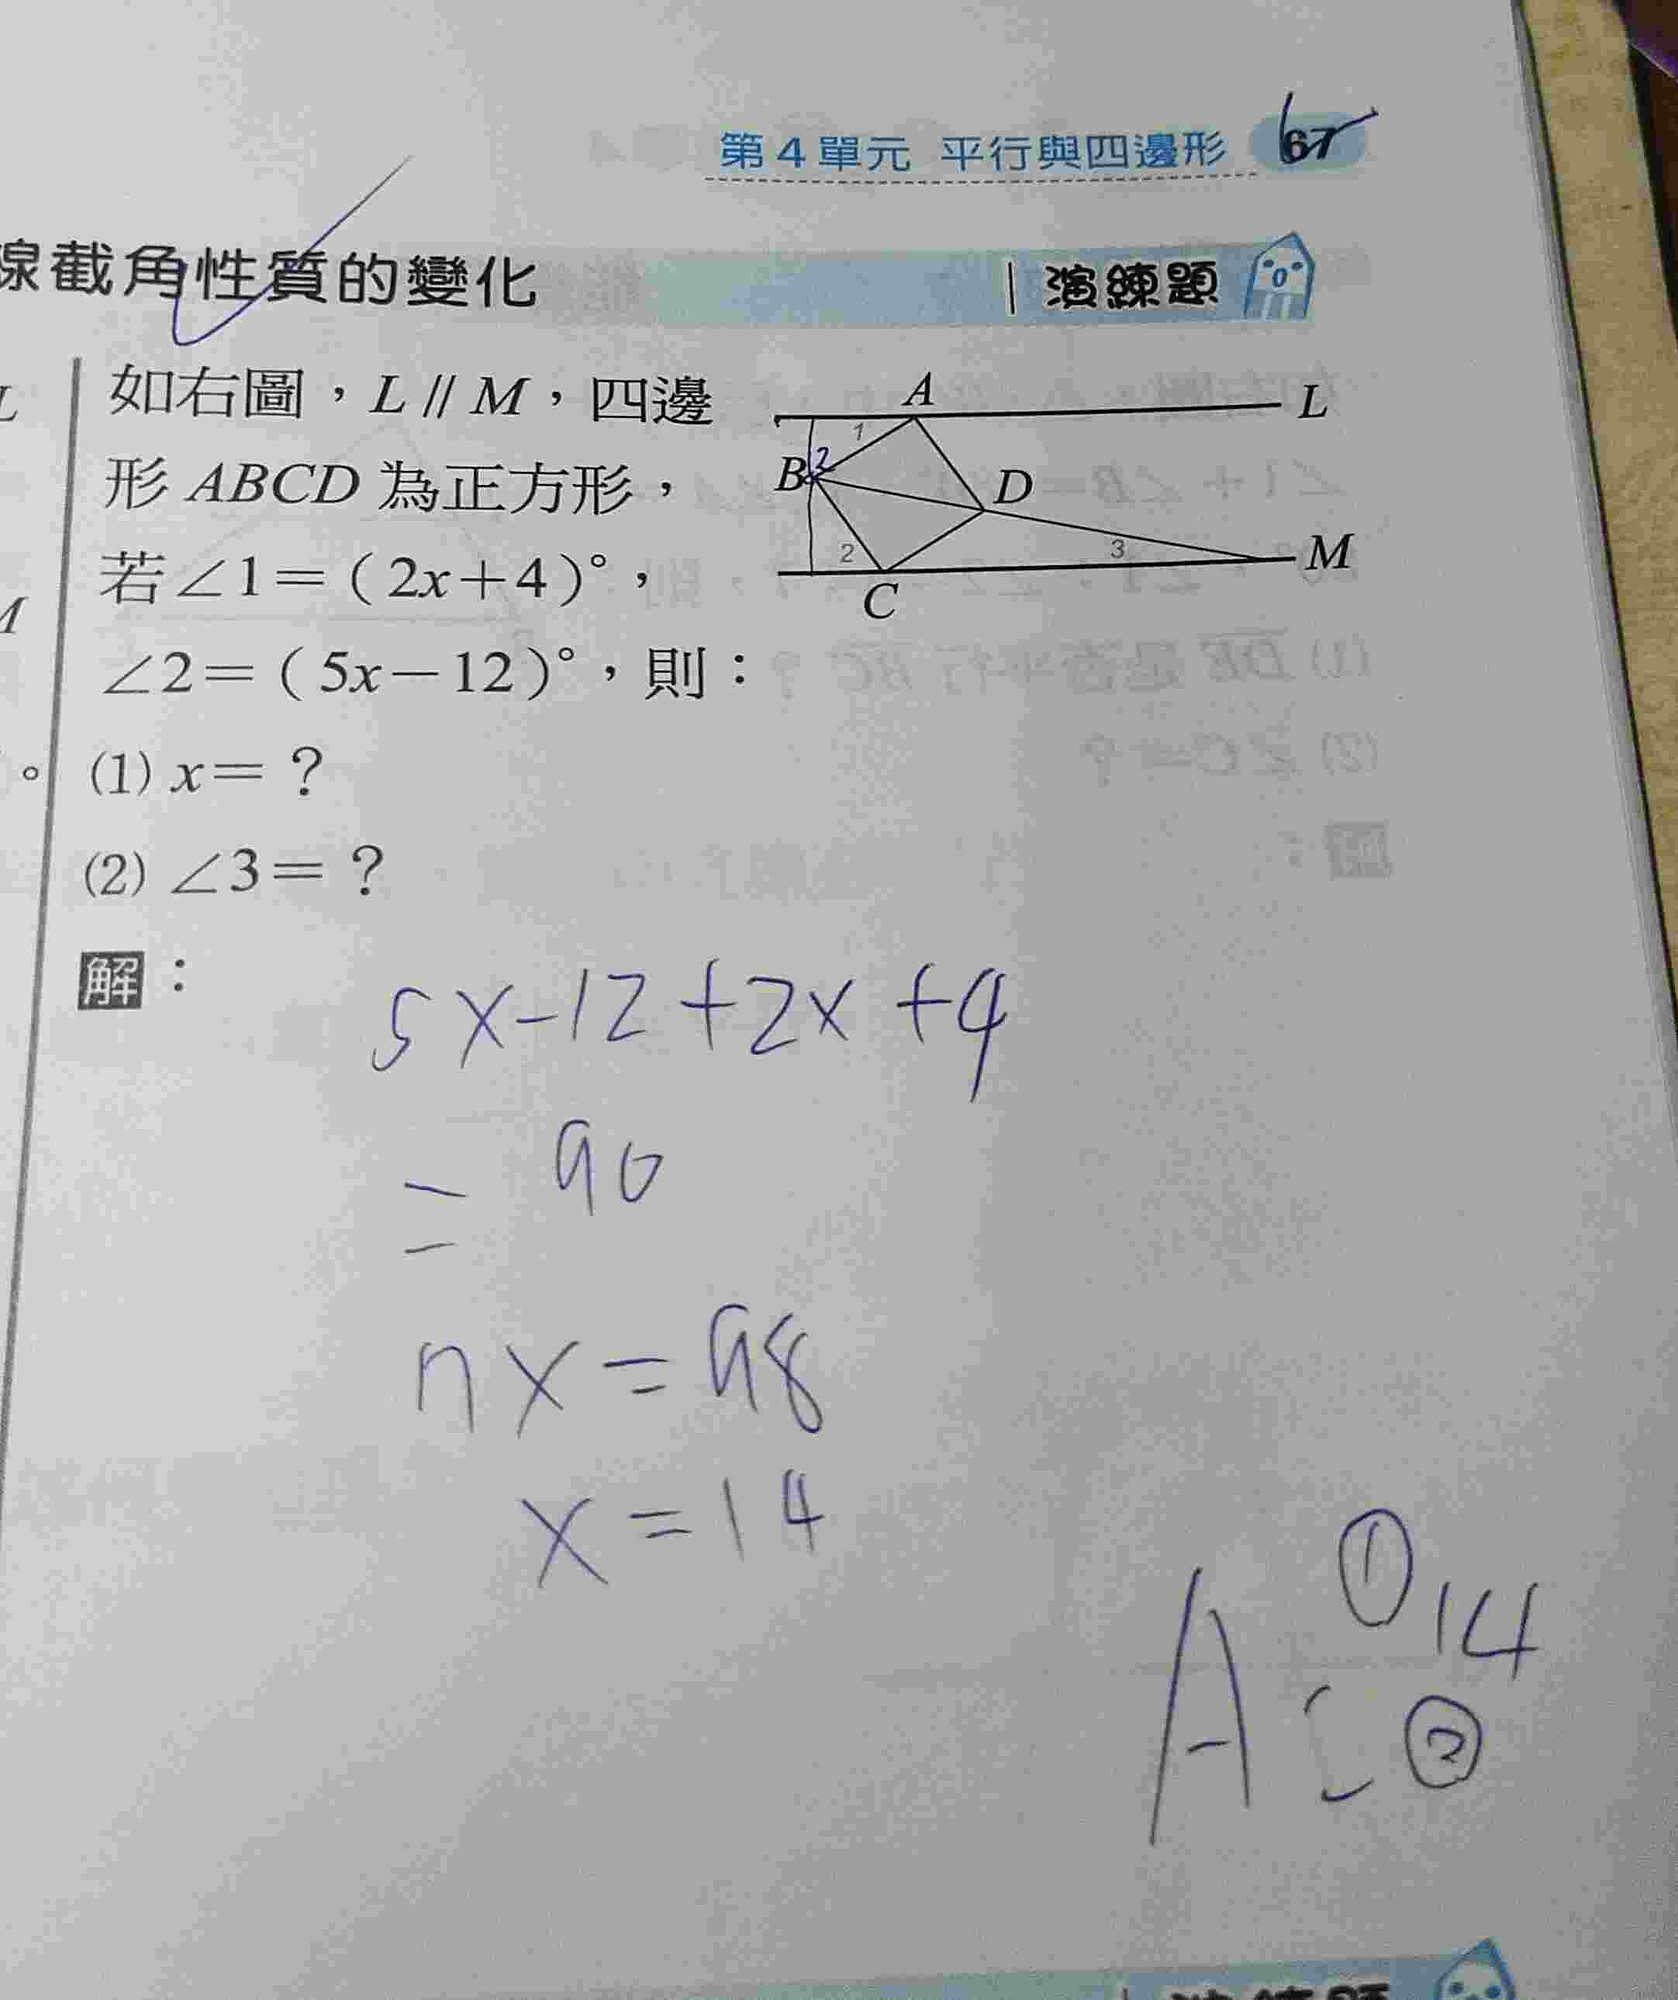 第4單元 平行與四邊形 67
線截角性質的變化 | 演練題
如右圖，L // M，四邊
形 ABCD 為正方形，
若∠1＝（2x＋4）°，
∠2＝（5x－12）°，則：
(1) x＝？
(2) ∠3＝？
A
L
1
B 2
D
2
3
M
C
解：
5x-12+2x+4
= 90
7x=98
x=14
A: ① 14
②
∠C＝？
演練題